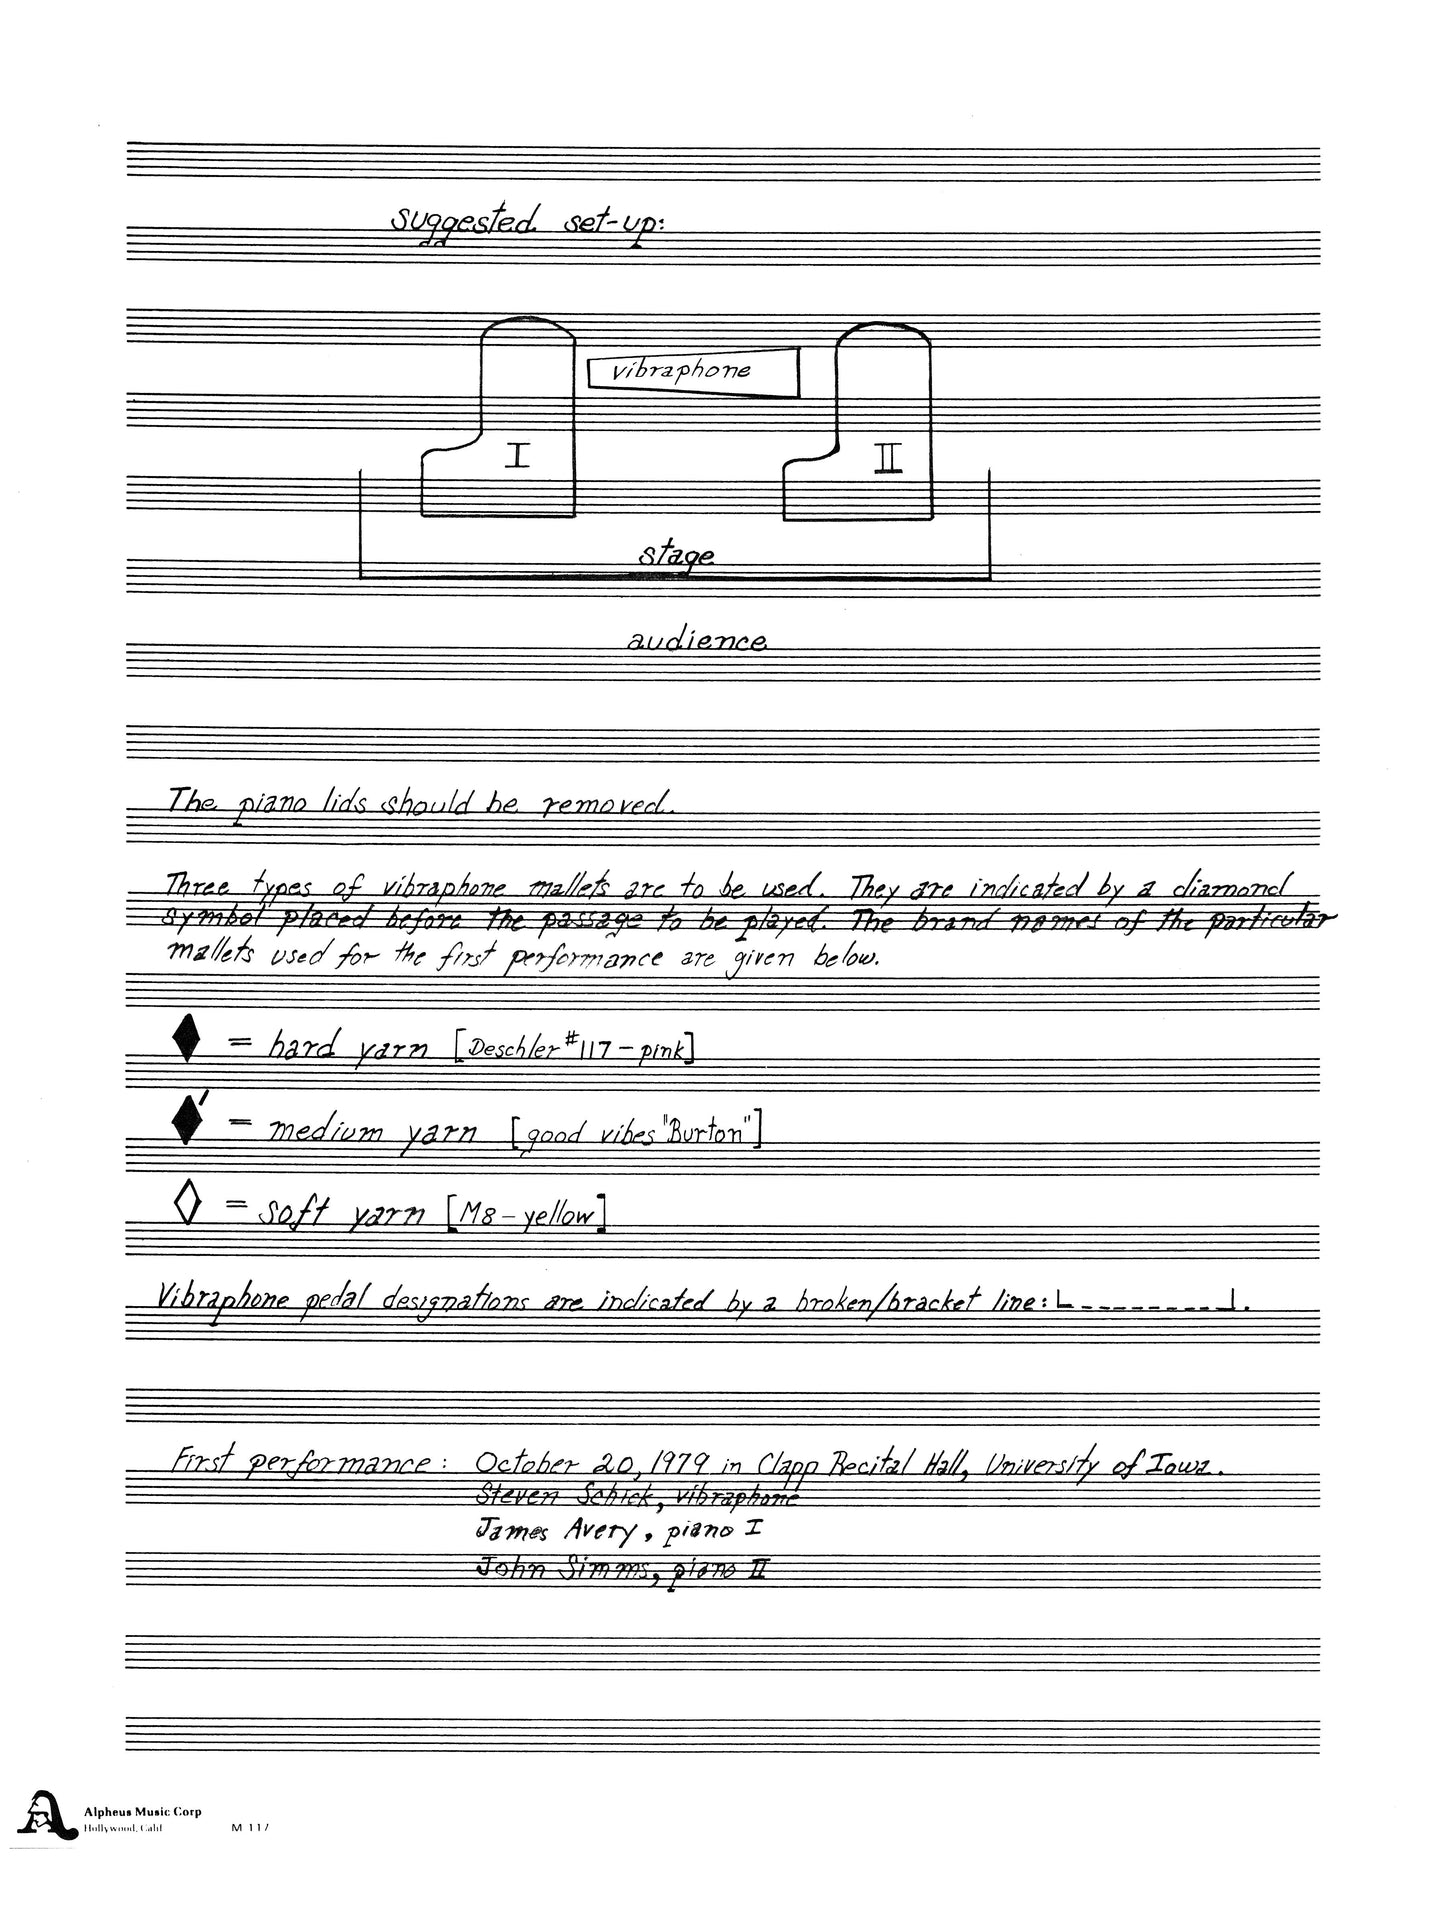 suggested set-up:
vibraphone
I
II
stage
audience
The piano lids should be removed.
Three types of vibraphone mallets are to be used. They are indicated by a diamond
symbol placed before the passage to be played. The brand names of the particular
mallets used for the first performance are given below.
= hard yarn [Deschler #117 - pink]
= medium yarn [good vibes "Burton"]
= soft yarn [M8 - yellow]
Vibraphone pedal designations are indicated by a broken/bracket line: ⌊---------⌋.
First performance: October 20, 1979 in Clapp Recital Hall, University of Iowa.
Steven Schick, vibraphone
James Avery, piano I
John Simms, piano II
Alpheus Music Corp
Hollywood, Calif
M 117